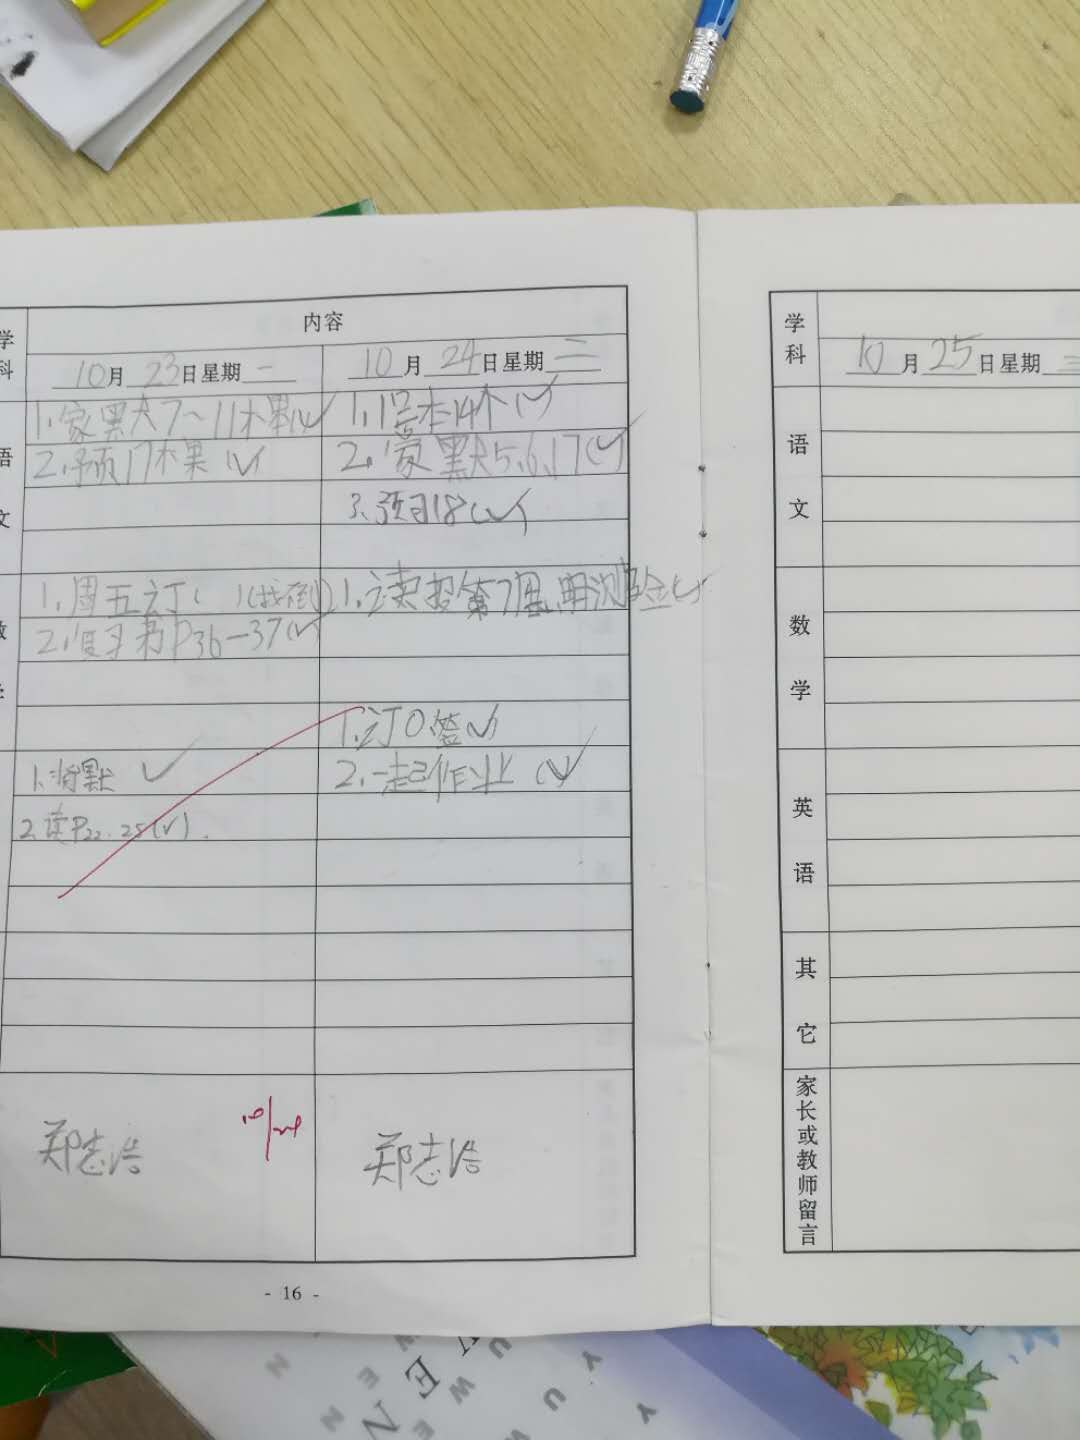 学科
内容
10月23日星期一
10月24日星期二
语文
1.家默7~11木果(✓
2.预17木果(✓
1.1号本14个(✓
2.家默5.6.17(✓
3.预习18(✓
数学
1.周五订( )(找
2.复习书P36-37(✓
1.读报第7周
1.订 签(✓
2.一起作业(✓
1.默 ✓
2.读P22.25(✓).
郑志浩
10/24
郑志浩
- 16 -
学科
10月25日星期三
语文
数学
英语
其它
家长或教师留言